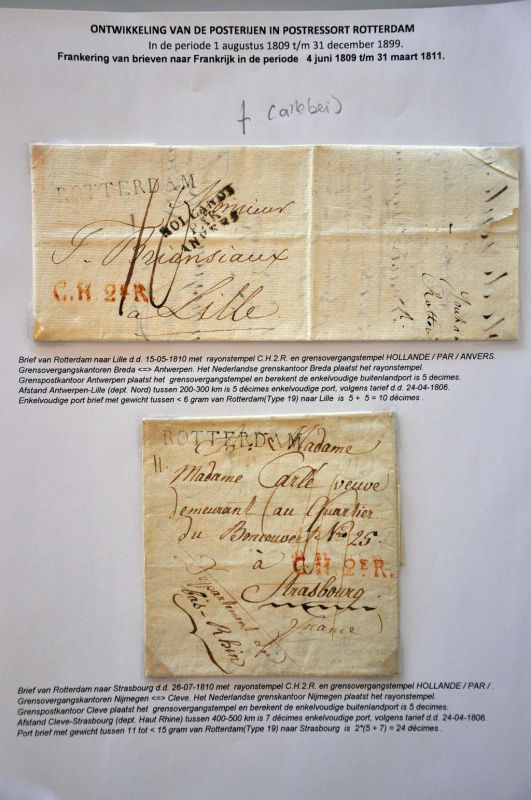 ONTWIKKELING VAN DE POSTERIJEN IN POSTRESSORT ROTTERDAM
In de periode 1 augustus 1809 t/m 31 december 1899.
Frankering van brieven naar Frankrijk in de periode 4 juni 1809 t/m 31 maart 1811.
ROTTERDAM
HOLLANDE
PAR
ANVERS
Monsieur
C.H. 2e R.
a Lille
Brief van Rotterdam naar Lille d.d. 15-05-1810 met rayonstempel C.H.2.R. en grensovergangstempel HOLLANDE / PAR / ANVERS.
Grensovergangskantoren Breda <=> Antwerpen. Het Nederlandse grenskantoor Breda plaatst het rayonstempel.
Grenspostkantoor Antwerpen plaatst het grensovergangstempel en berekent de enkelvoudige buitenlandport is 5 decimes.
Afstand Antwerpen-Lille (dept. Nord) tussen 200-300 km is 5 décimes enkelvoudige port, volgens tarief d.d. 24-04-1806.
Enkelvoudige port brief met gewicht tussen < 6 gram van Rotterdam(Type 19) naar Lille is 5 + 5 = 10 décimes .
ROTTERDAM
11.
Madame
Madame Carlé veuve
demeurant au Quartier
du Boncouvert Nro 25.
à
C.H. 2e R.
Strasbourg
Departement du
bas-Rhin
France
Brief van Rotterdam naar Strasbourg d.d. 26-07-1810 met rayonstempel C.H.2.R. en grensovergangstempel HOLLANDE / PAR / .
Grensovergangskantoren Nijmegen <=> Cleve. Het Nederlandse grenskantoor Nijmegen plaatst het rayonstempel.
Grenspostkantoor Cleve plaatst het grensovergangstempel en berekent de enkelvoudige buitenlandport is 5 decimes.
Afstand Cleve-Strasbourg (dept. Haut Rhine) tussen 400-500 km is 7 décimes enkelvoudige port, volgens tarief d.d. 24-04-1806.
Port brief met gewicht tussen 11 tot < 15 gram van Rotterdam(Type 19) naar Strasbourg is 2*(5 + 7) = 24 décimes .